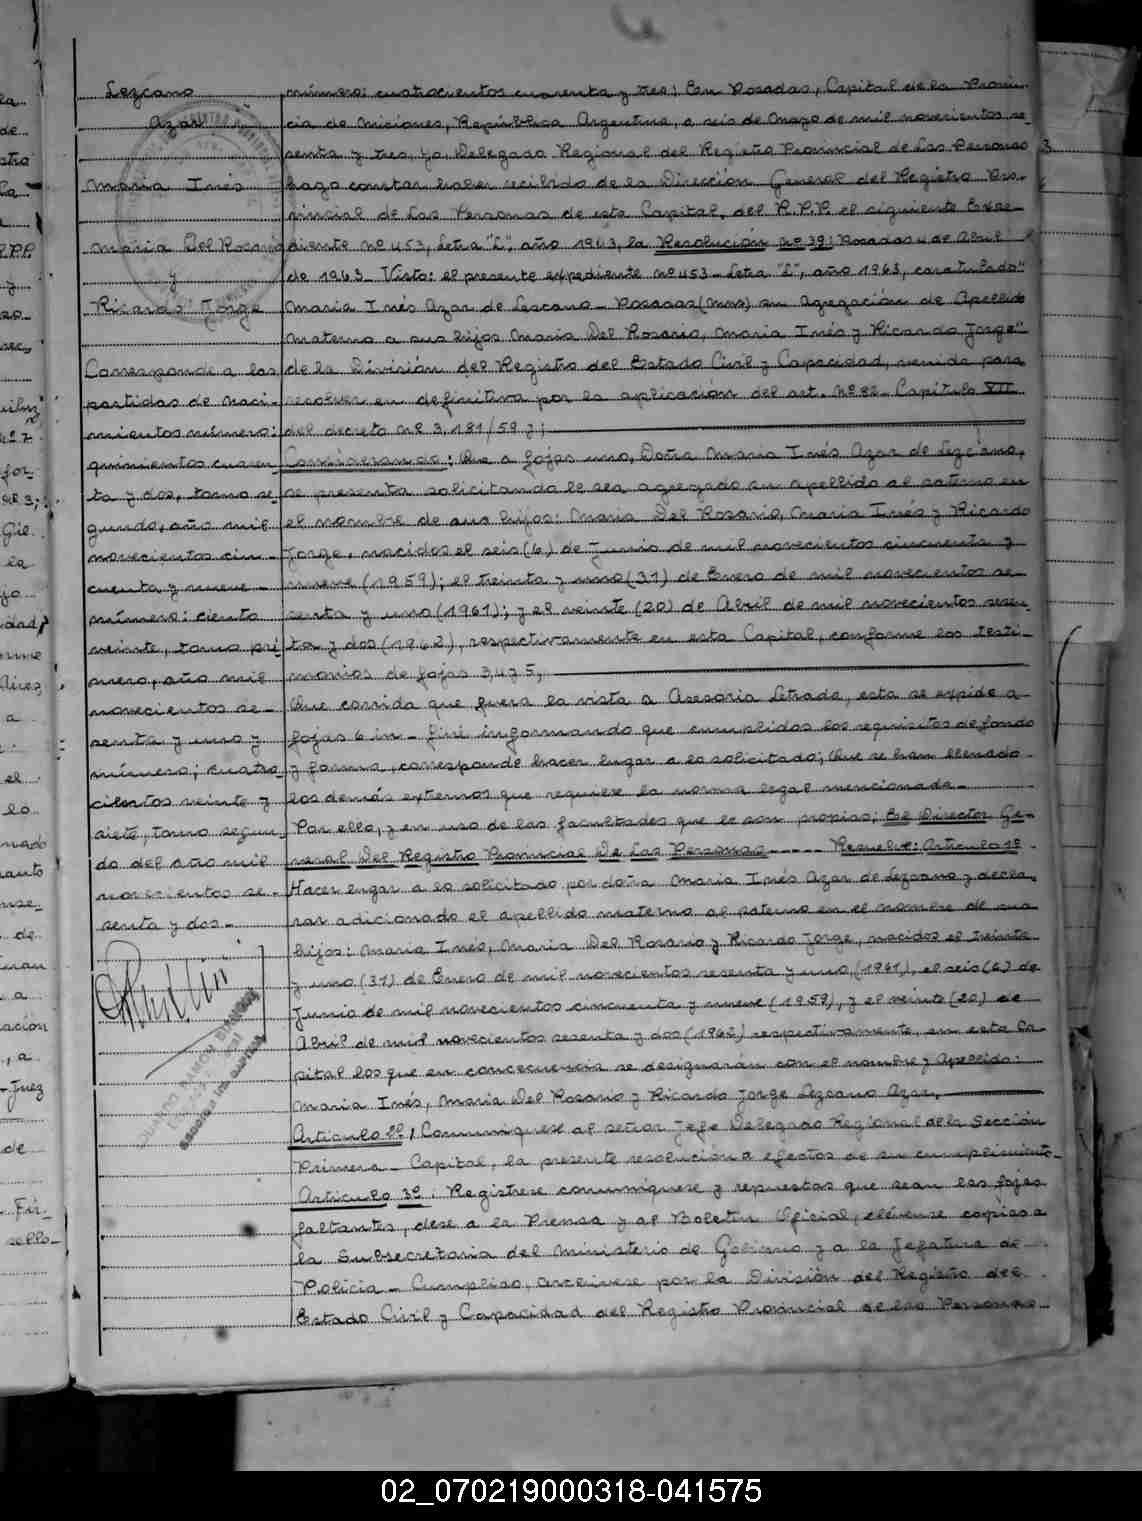 Lezcano
Azar
Maria Inés
Maria Del Rosario
y
Ricardo Jorge
Corresponde a las
partidas de naci-
mientos número:
quinientos cuaren
ta y dos, tomo se-
gundo, año mil
novecientos cin-
cuenta y nueve-
número: ciento
veinte, tomo pri-
mero, año mil
novecientos se-
senta y uno y
número; cuatro-
cientos veinte y
siete, tomo segun-
do del año mil
novecientos se-
senta y dos-
número: cuatrocientos cuarenta y tres; En Posadas, Capital de la Provin-
cia de Misiones, República Argentina, a seis de Mayo de mil novecientos se-
senta y tres, yo, Delegado Regional del Registro Provincial de Las Personas
hago constar haber recibido de la Dirección General del Registro Pro-
vincial de Las Personas de esta Capital, del R.P.P. el siguiente Expe-
diente nº 453, Letra "L", año 1963, la Resolución nº 39: Posadas 4 de Abril
de 1963- Visto: el presente expediente nº 453- Letra "L", año 1963, caratulado"
Maria Inés Azar de Lescano- Posadas (Mnes) su Agregación de Apellido
Materno a sus hijos Maria Del Rosario, Maria Inés y Ricardo Jorge"
de la División del Registro del Estado Civil y Capacidad, venido para
resolver en definitiva por la aplicación del art. Nº 82- Capítulo VII
del decreto nº 3.181/59 y;
Considerando: Que a fojas uno, Doña Maria Inés Azar de Lezcano,
se presenta solicitando le sea agregado su apellido al paterno en
el nombre de sus hijos: Maria Del Rosario, Maria Inés y Ricardo
Jorge, nacidos el seis (6) de Junio de mil novecientos cincuenta y
nueve (1959); el treinta y uno (31) de Enero de mil novecientos se-
senta y uno (1961); y el veinte (20) de Abril de mil novecientos sesen-
ta y dos (1962), respectivamente en esta Capital, conforme los testi-
monios de fojas 3, 4 y 5,
Que corrida que fuera la vista a Asesoria Letrada, esta se expide a
fojas 6 in-fine informando que cumplidos los requisitos de fondo
y forma, corresponde hacer lugar a lo solicitado; Que se han llenado
los demás extremos que requiere la norma legal mencionada-
Por ello, y en uso de las facultades que le son propias; El Director Ge-
neral Del Registro Provincial De Las Personas----- Resuelve: Articulo 1º
Hacer lugar a lo solicitado por doña Maria Inés Azar de Lezcano y decla-
rar adicionado el apellido materno al paterno en el nombre de sus
hijos: Maria Inés, Maria Del Rosario y Ricardo Jorge, nacidos el treinta
y uno (31) de Enero de mil novecientos sesenta y uno, (1961), el seis (6) de
Junio de mil novecientos cincuenta y nueve (1959), y el veinte (20) de
Abril de mil novecientos sesenta y dos (1962) respectivamente, en esta Ca-
pital los que en concecuencia se designarán con el nombre y Apellido:
Maria Inés, Maria Del Rosario y Ricardo Jorge Lezcano Azar,
Articulo 2º; Comuniquese al señor Jefe Delegado Regional de la Sección
Primera- Capital, la presente resolución a efectos de su cumplimiento-
Articulo 3º. Registrese comuniquese y repuestas que sean las fojas
faltantes, dese a la Prensa y al Boletin Oficial, elévense copias a
la Subsecretaria del Ministerio de Gobierno y a la Jefatura de
Policia- Cumplido, archivese por la División del Registro del
Estado Civil y Capacidad del Registro Provincial de las Personas
02_070219000318-041575